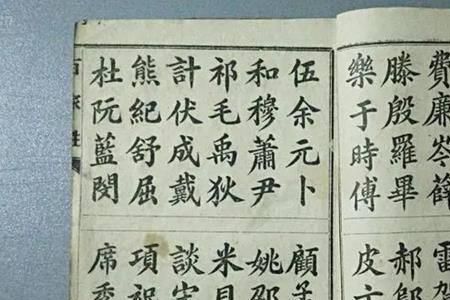 費廉岑薛 雷賀
滕殷羅畢 郝
樂于時傅 皮
伍余元卜 顧孟
和穆蕭尹 姚邵
祁毛禹狄 米貝
計伏成戴 談宋
熊紀舒屈 項祝
杜阮藍閔 席季
百家姓